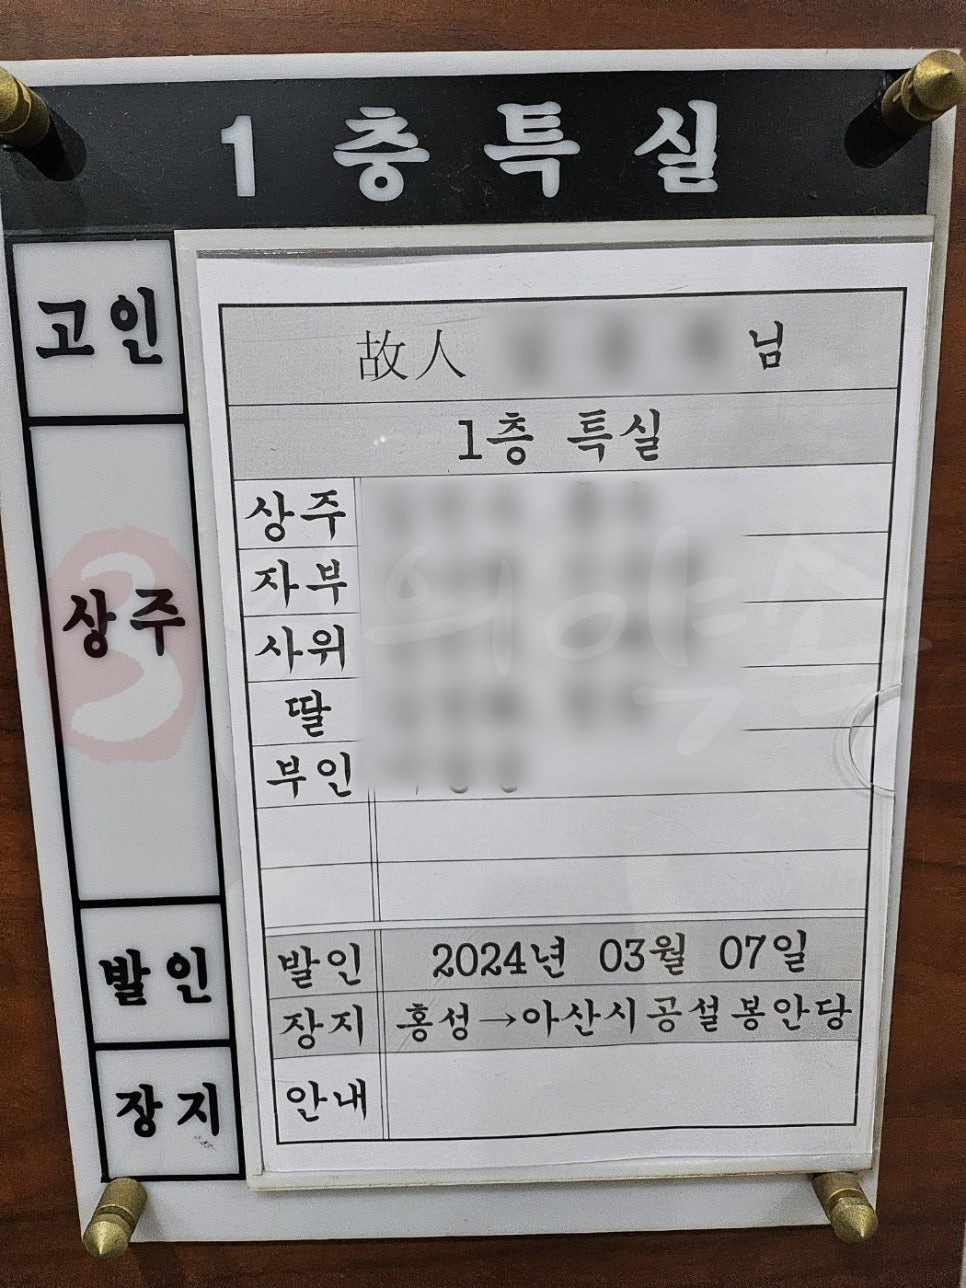 1층특실
고인
故人 님
1층 특실
상주
상주
자부
사위
딸
부인
발인
발인 2024년 03월 07일
장지 홍성→아산시공설봉안당
장지
안내
의약속